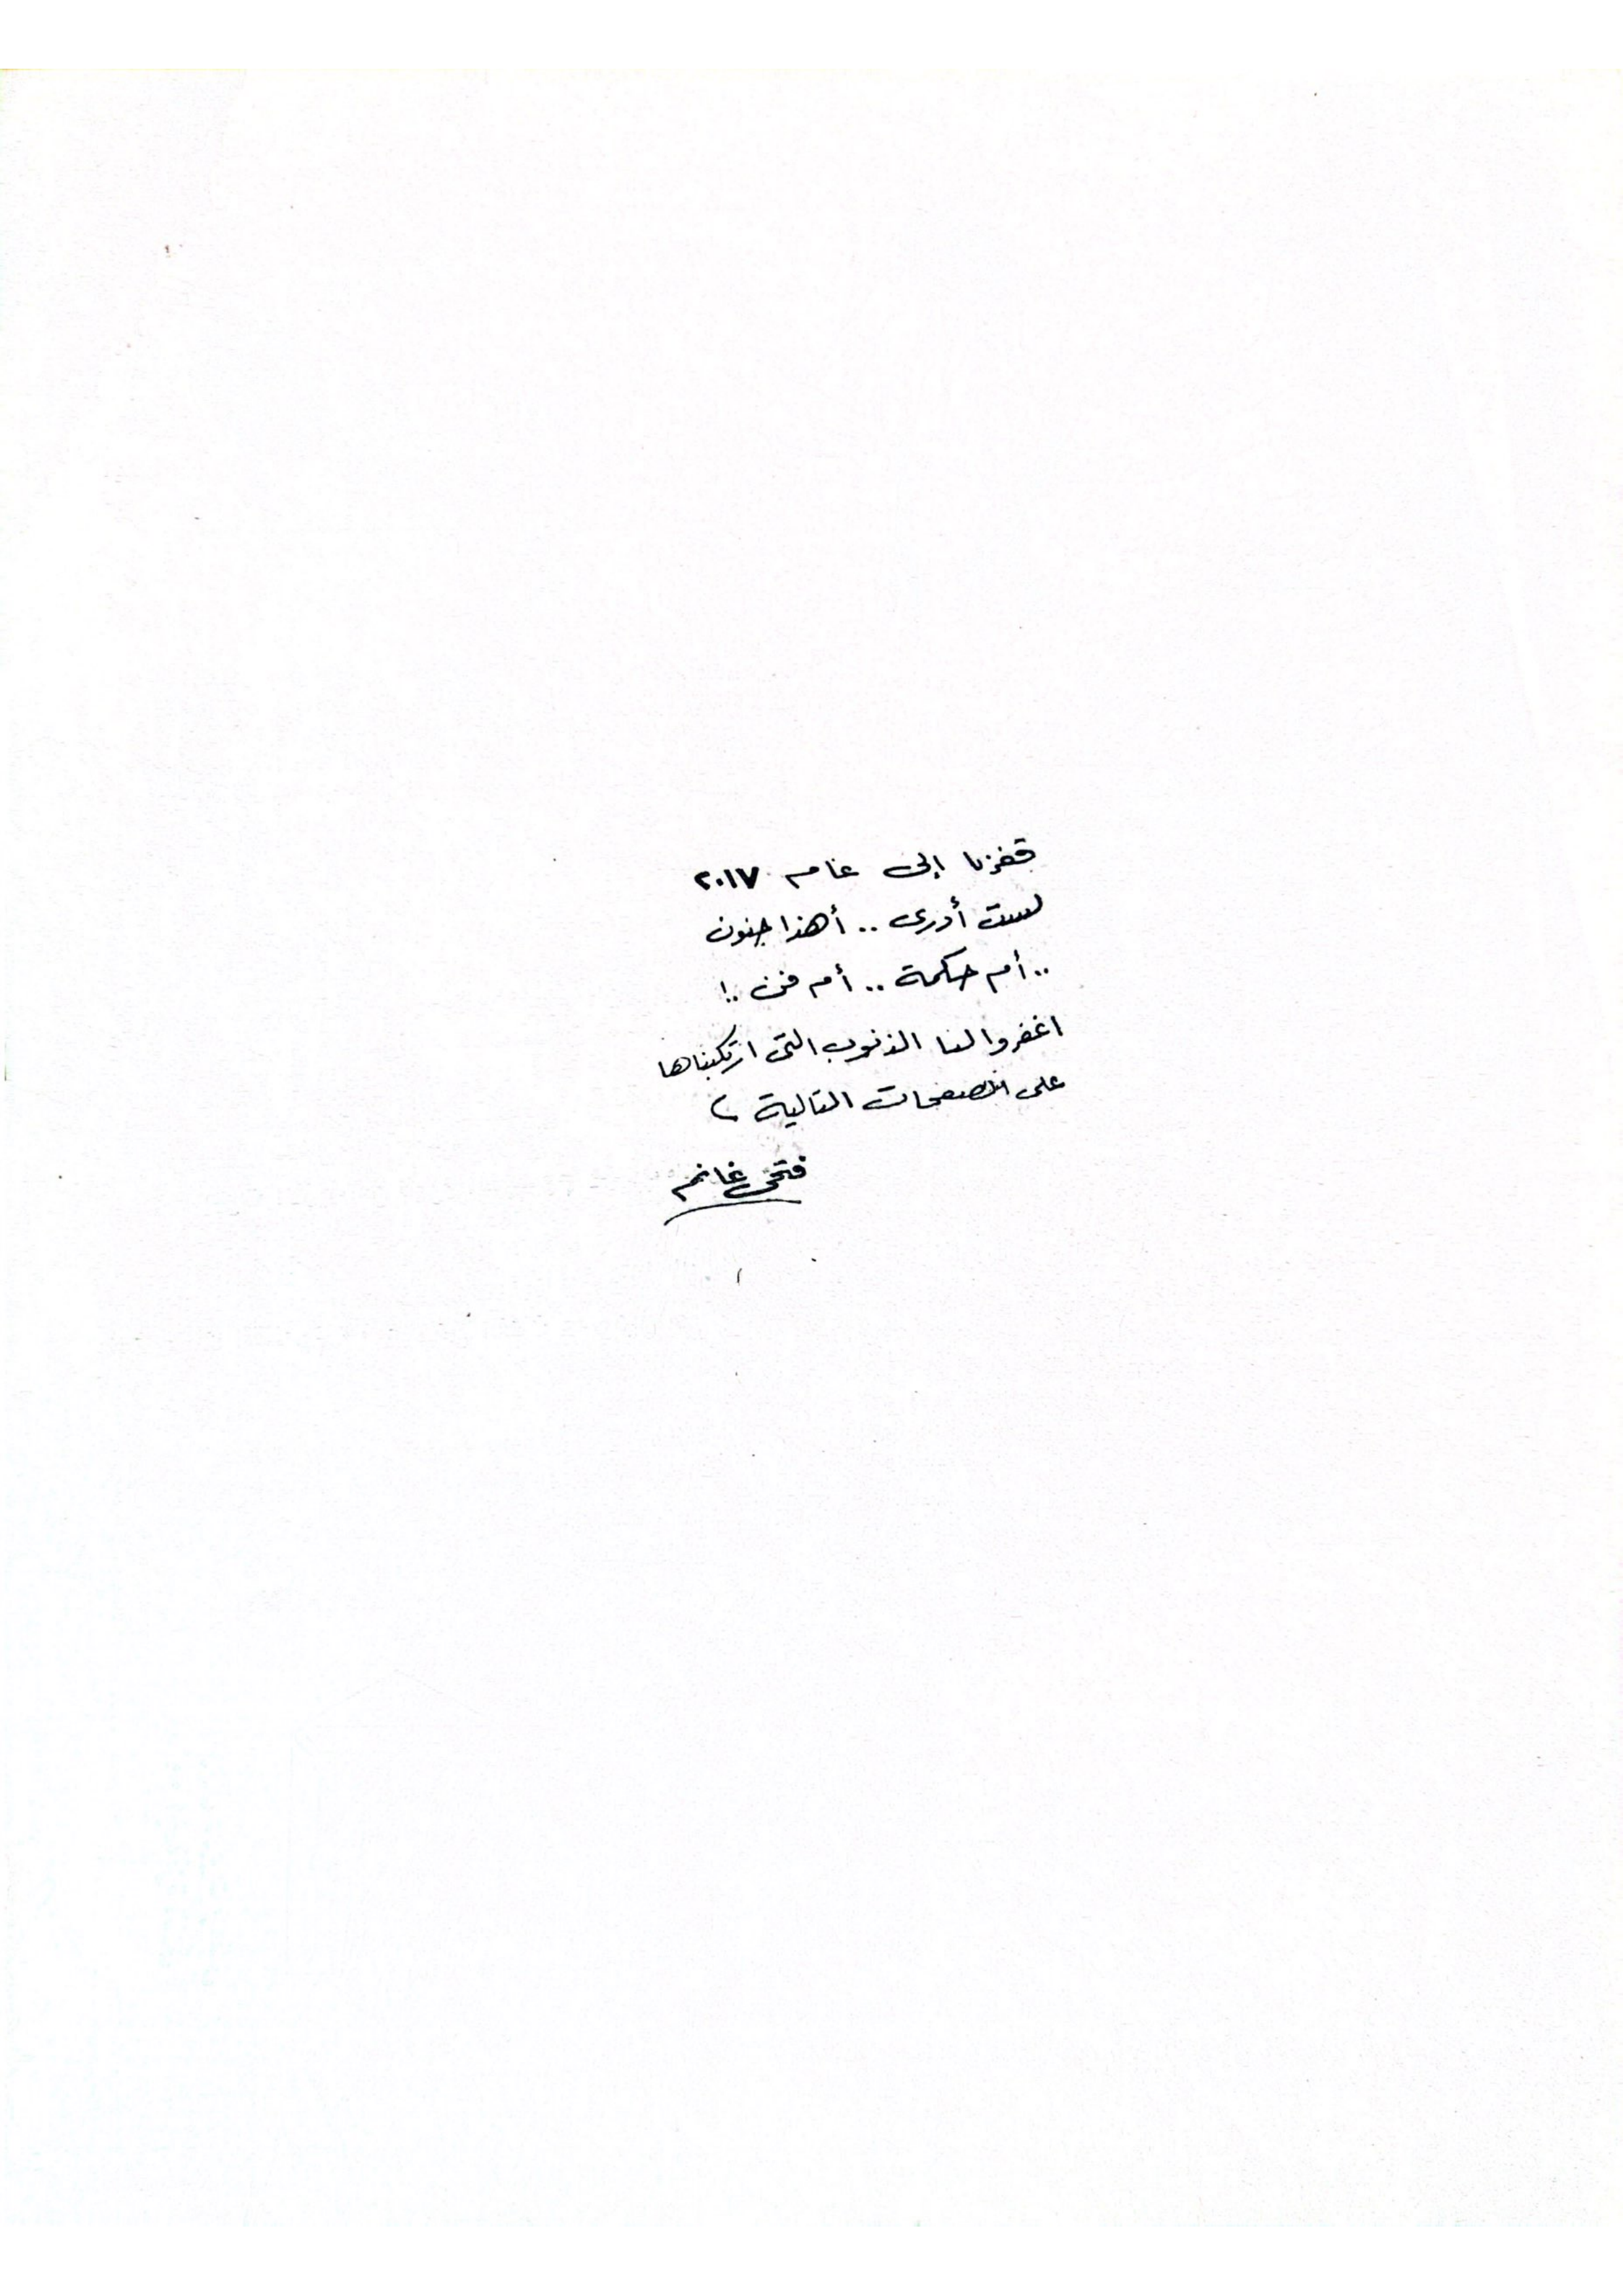 قفزنا إلى عام ٢٠١٧
لست أدرى .. أهذا جنون
.. أم حكمة .. أم فن ..!
اغفروا لنا الذنوب التى ارتكبناها
على الصفحات التالية
فتحى غانم